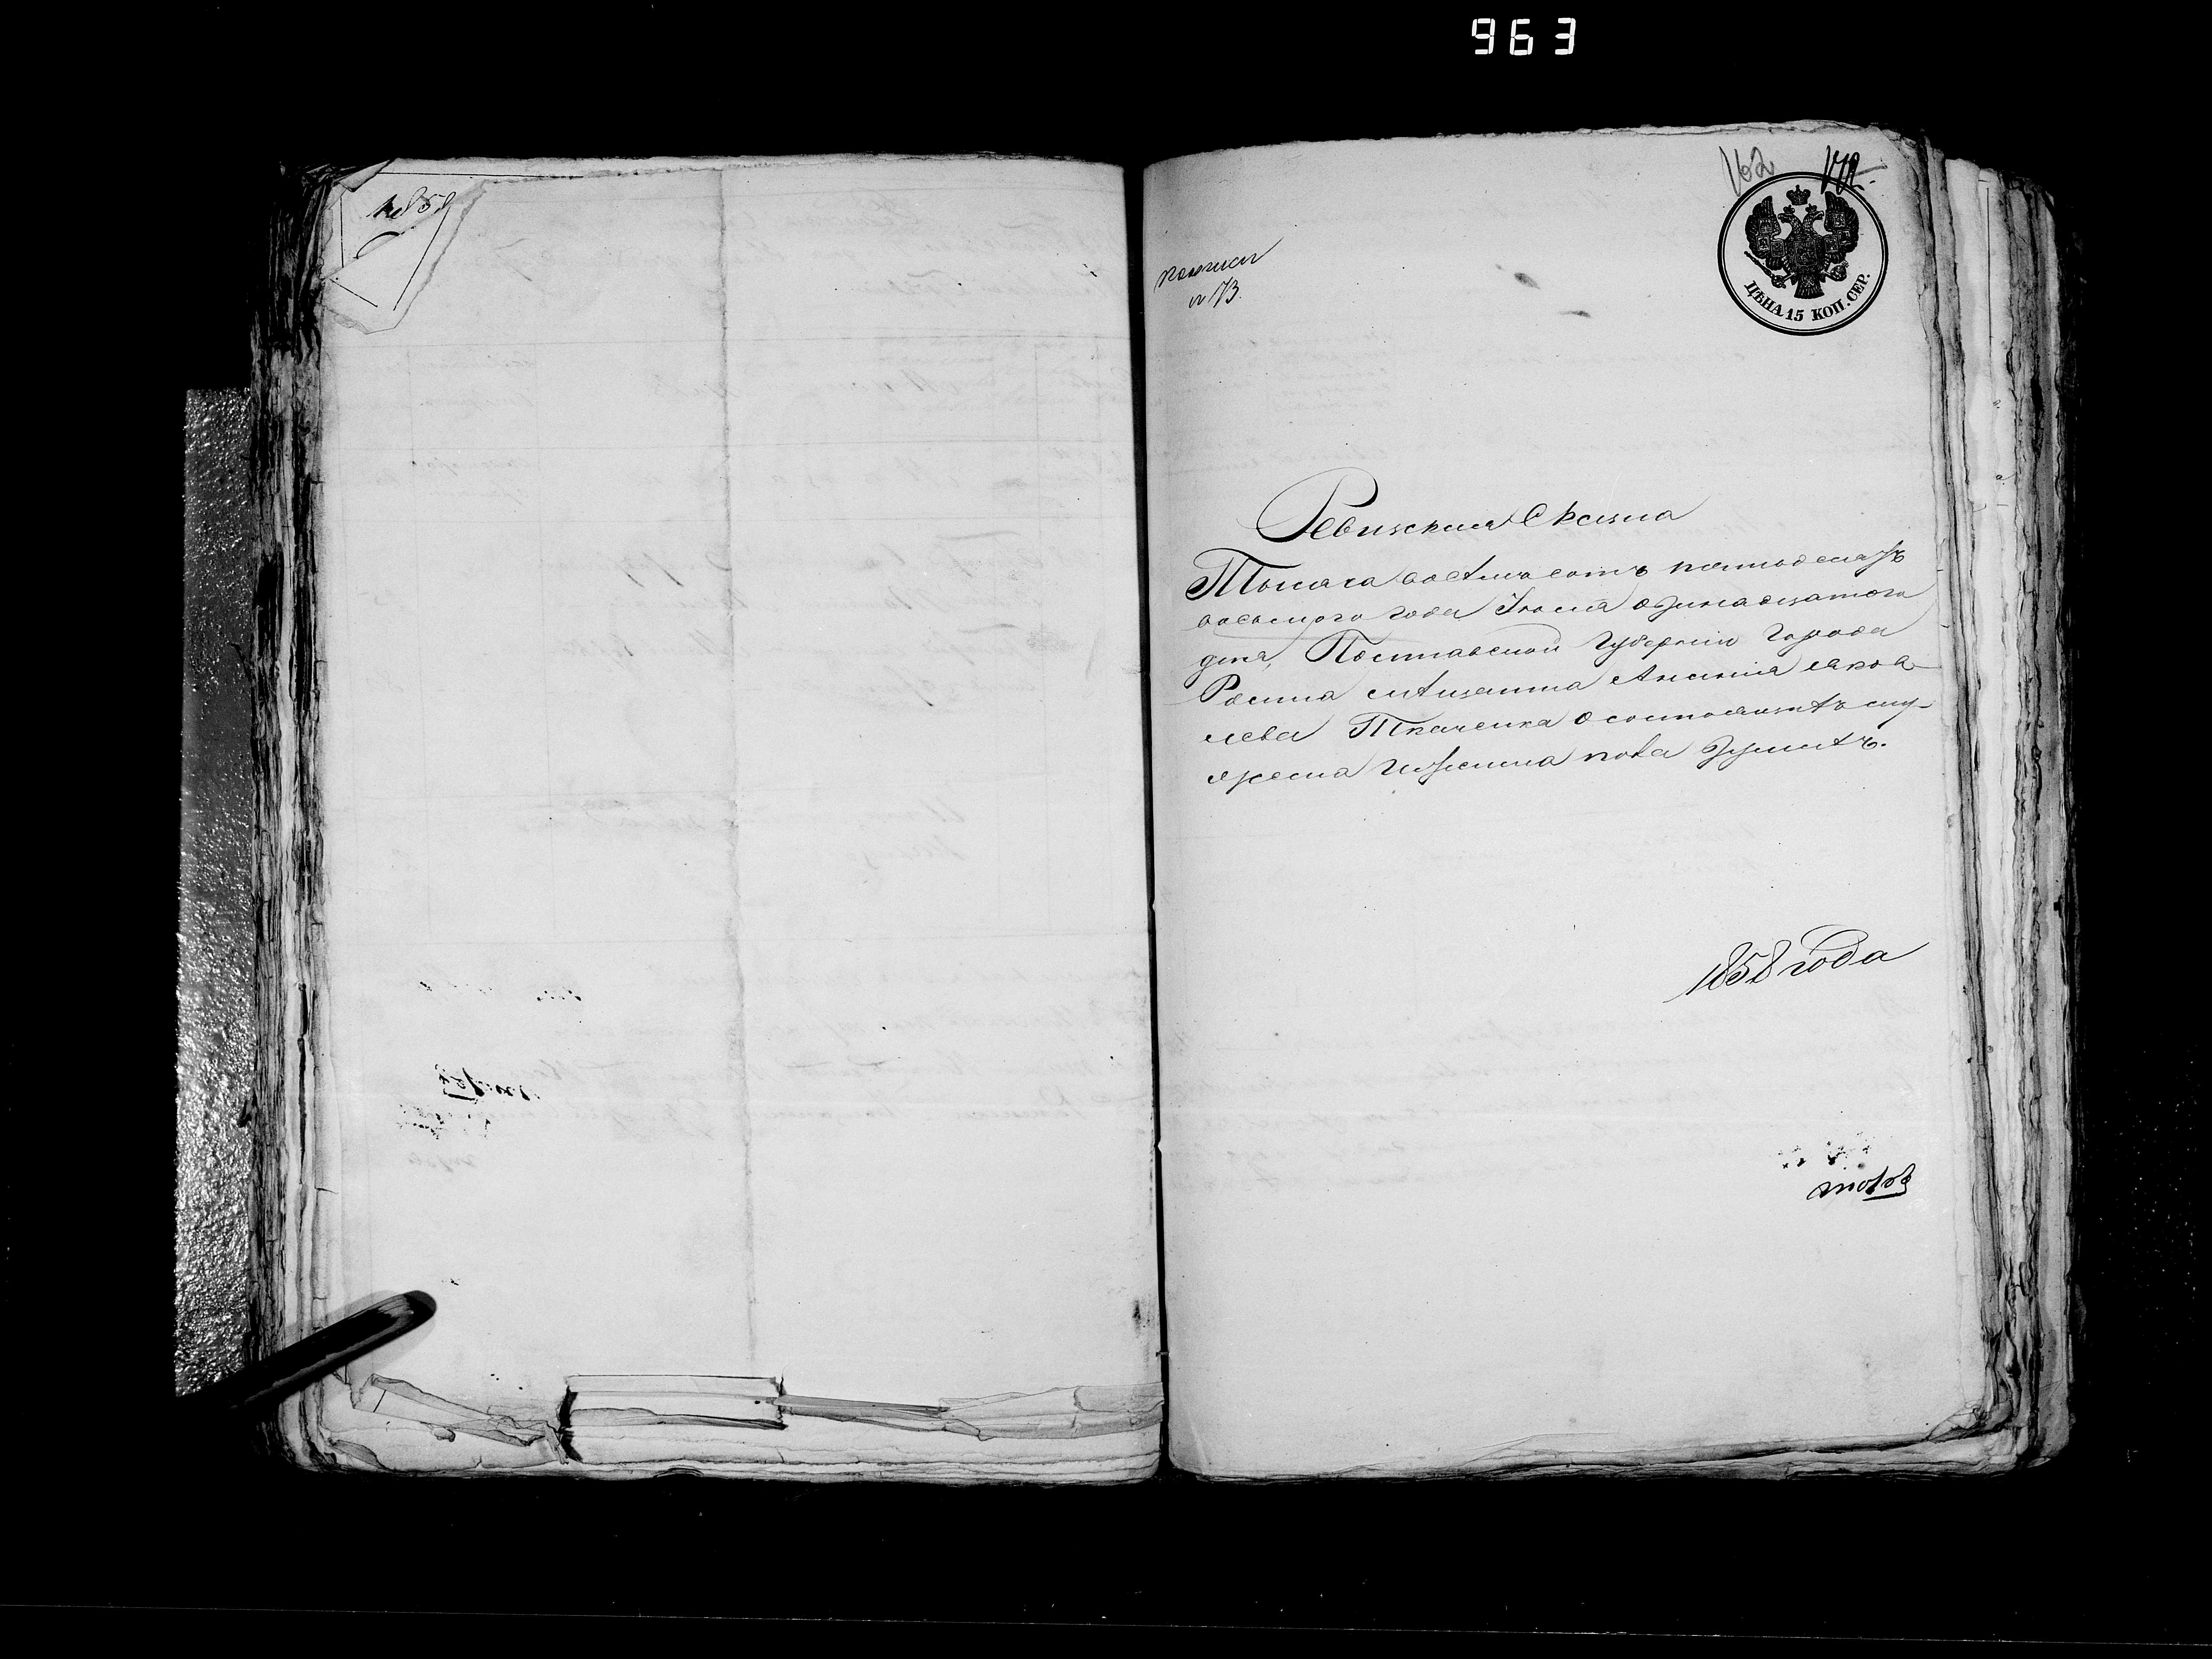 963
1858
162
ЦѢНА 15 КОП. СЕР.
Ревизская Сказка
Тысяча восѣмъ сотъ пятдесятъ
восьмого года Іюня одинадцатого
дня, Полтавской Губерніи Города
Ромна мѣщанина Анания Яков
лева Ткаченка о состоящихъ му-
жеска и женска пола душахъ.
1858 года